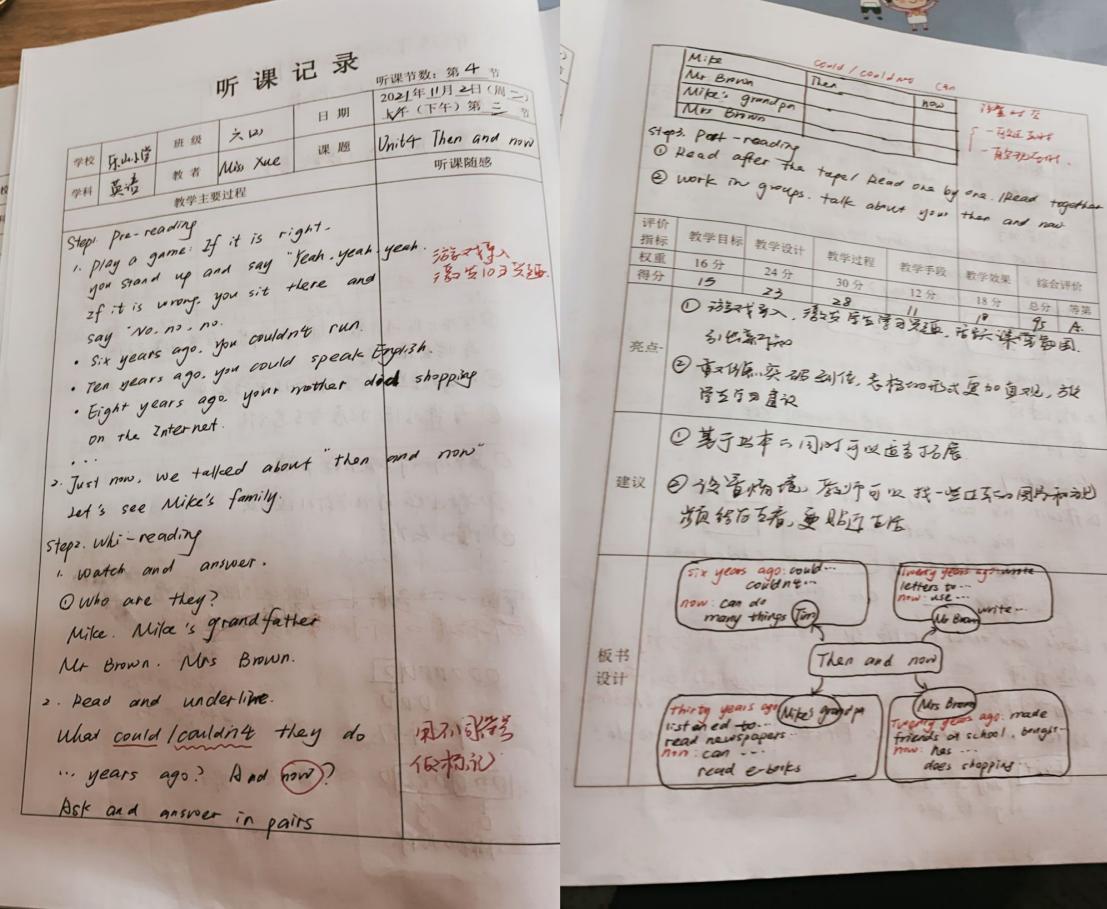 听课记录
听课节数：第 4 节
学校 乐山小学 班级 六(2) 日期 2021年11月2日(周二)
上午（下午）第二节
学科 英语 教者 Miss Xue 课题 Unit4 Then and now
教学主要过程 听课随感
Step1. Pre-reading
1. Play a game: If it is right.
you stand up and say "Yeah, yeah, yeah.
If it is wrong, you sit there and
say "No, no, no.
• Six years ago, you couldn't run.
• Ten years ago, you could speak English.
• Eight years ago, your mother did shopping
on the Internet.
...
2. Just now, we talked about "then and now"
Let's see Mike's family.
Step2. Whi-reading
1. Watch and answer.
① Who are they?
Mike. Mike's grandfather
Mr Brown. Mrs Brown.
2. Read and underline.
What could/couldn't they do
... years ago? And now?
Ask and answer in pairs
游戏导入
激发学习兴趣.
用不同符号
做标记
could / couldn't can
Mike Then now
Mr Brown
Mike's grandpa
Mrs Brown
Step3. Post-reading
① Read after the tape/ Read one by one. /Read together
② work in groups. talk about your then and now
评价指标 教学目标 教学设计 教学过程 教学手段 教学效果 综合评价
权重 16分 24分 30分 12分 18分 总分 等第
得分 15 23 28 11 18 95 A.
亮点
① 游戏导入，激发学生学习兴趣，活跃课堂氛围.
引出新知
② 表格的形式更加直观，
学生学习建议
建议
① 基于书本的同时可以适当拓展
② 设置情境，教师可以找一些过去的图片和视
频给学生看，更贴近生活
板书设计
Six years ago: could...
couldn't...
now: can do
many things Tim
Twenty years ago: wrote
letters to...
now: use...
write...
Mr Brown
Then and now
Thirty years ago Mike's grandpa
listened to...
read newspapers...
now: can ...
read e-books
Mrs Brown
Twenty years ago: made
friends at school, bought...
now: has ...
does shopping